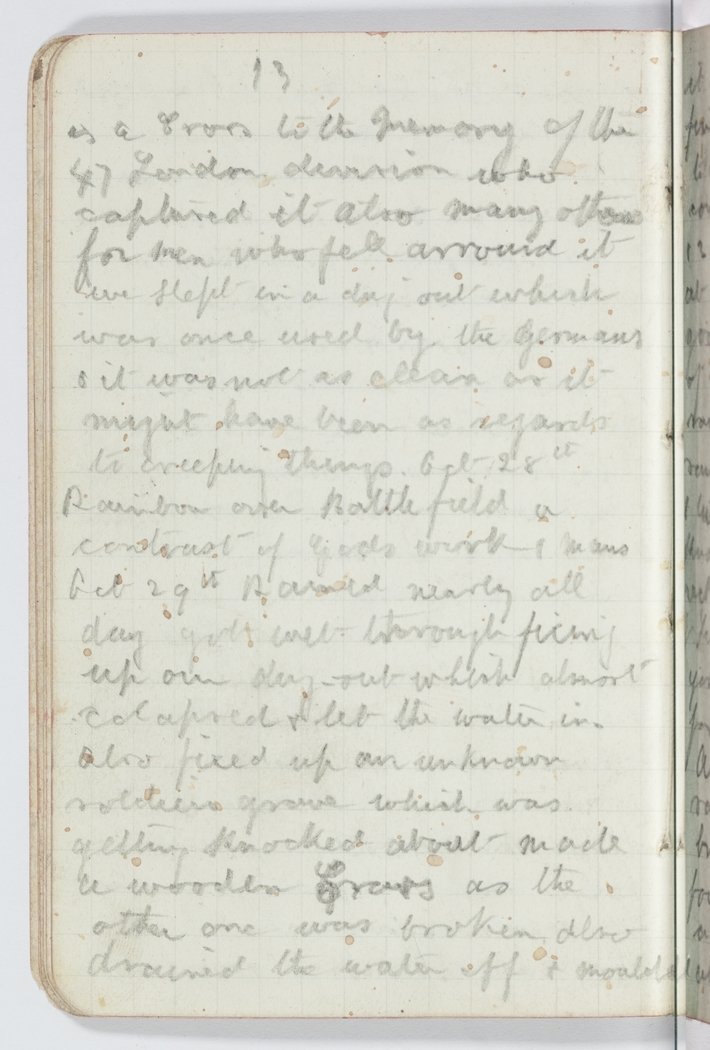 13
is a Cross to the Memory of the
47 London division who
captured it also many others
for men who fell arround it
we slept in a dug out which
was once used by the Germans
& it was not as clean as it
might have been as regards
to creeping things. Oct 28th
Rainbow over Battlefield a
contrast of Gods work & mans
Oct 29th Rained nearly all
day got wet through fixing
up our dug-out which almost
colapsed & let the water in.
also fixed up an unknown
soldiers grave which was
getting knocked about made
a wooden Cross as the
other one was broken also
drained the water off & moulded